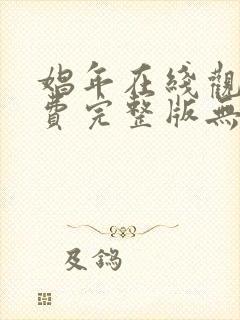 娼年在綫觀
費完整版無
及鎢